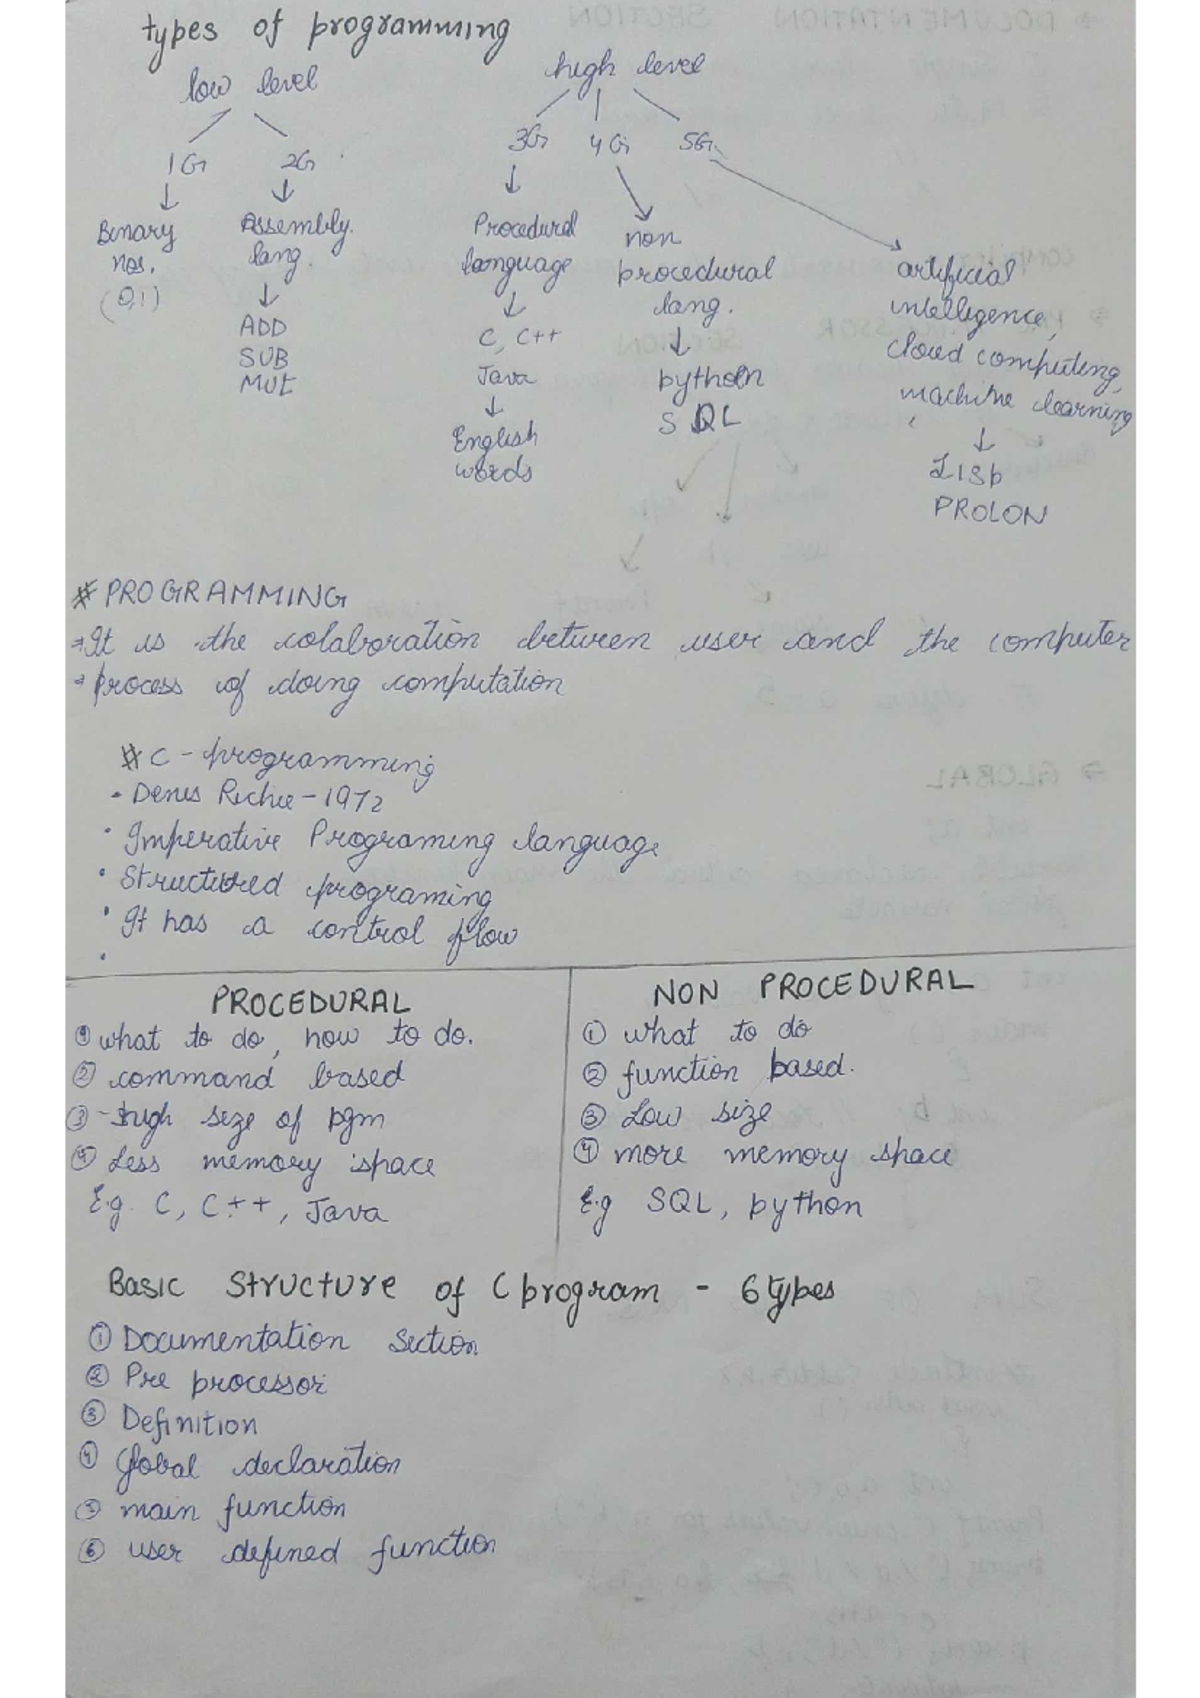 types of programming
low level
high level
1G
2G
3G
4G
5G
Binary
nos.
(0,1)
Assembly.
lang
ADD
SUB
MUL
Procedural
language
C, C++
Java
English
words
non
procedural
lang.
python
SQL
artificial
intelligence,
cloud computing,
machine learning
LISp
PROLON
# PROGRAMMING
→ It is the colaboration between user and the computer
→ process of doing computation
# C - programming
• Denis Richie - 1972
• Imperative Programing language
• Structured programing
• It has a control flow
•
PROCEDURAL
① what to do, how to do.
② command based
③ high size of pgm
④ Less memory space
E.g. C, C++, Java
NON PROCEDURAL
① what to do
② function based.
③ Low size
④ more memory space
E.g SQL, python
Basic structure of C program - 6 types
① Documentation Section
② Pre processor
③ Definition
④ Global declaration
⑤ main function
⑥ user defined function